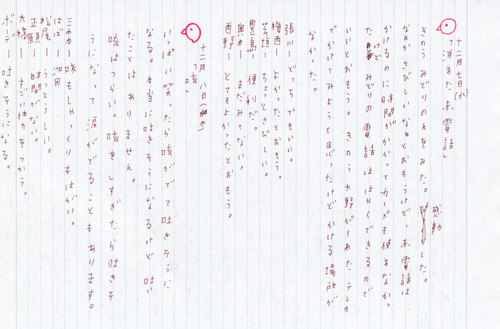 十二月七日(水)
消えた赤電話
きのうみどりのんをみた。感動した。
なんかさびしいなとおもうけど、赤電話は
かけるのに時間がかかってカードも使えなかっ
たけどみどりの電話ははやくできるので
いいとおもう。きのう水野がくれたテレカ
でかけてみようと思ったけどかける場所が
なかった。
張川ーどちでもいい。
梅西ーよかったとおもう。
芝垣ーちょっとさびしい。
豊島ー便利だ。
奥本ーまだみてない。
西野ーとてもよかったとおもう。
十二月八日(木)
咳
いっぱい笑たら咳がでて吐きそうに
なる。本当に吐きそうになるけど吐い
たことはありません。
咳はつらい。咳をしすぎたら吐きそ
うになって涙がでることもあります。
三木ー咳もしゃっくりもはがいい。
松尾ーうっとうしい。
正願ー時間がない。
大橋ー
ボーデー吐きそうになる。